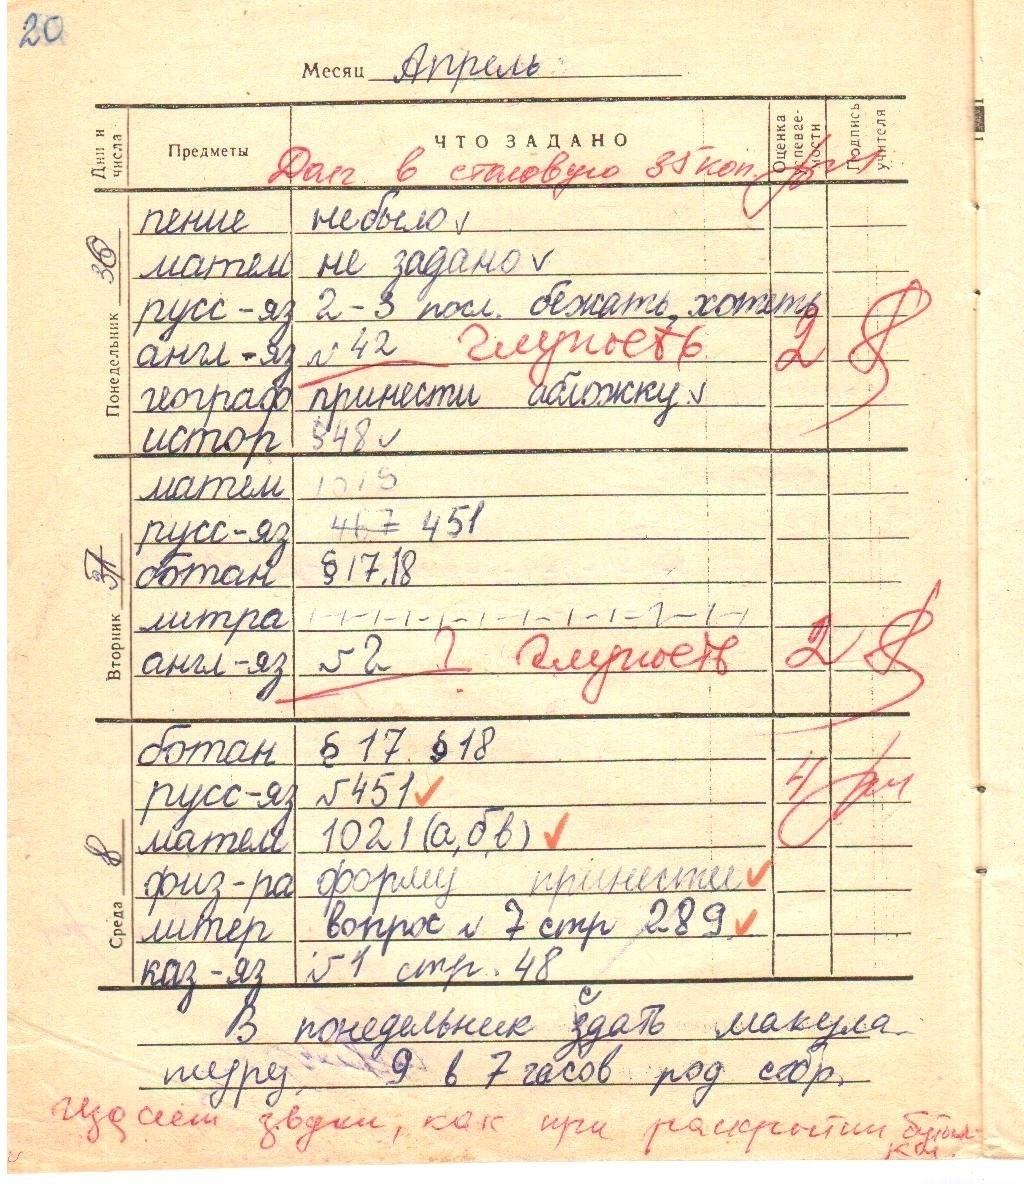 20
Месяц Апрель
Дни и числа Предметы ЧТО ЗАДАНО Оценка успеваемости Подпись учителя
Долг в столовую 35 коп.
Понедельник
пение небыло
матем не задано
русс-яз 2-3 посл. бежать, хотеть
англ-яз № 42 Глупость 2
географ принести абложку
истор §48
Вторник
матем 1019
русс-яз 467 451
ботан § 17,18
литра
англ-яз № 2 ? Глупость 2
Среда 8
ботан § 17. § 18 4
русс-яз № 451
матем 1021 (а,б,в)
физ-ра форму принести
литер вопрос № 7 стр 289
каз-яз № 1 стр. 48
В понедельник здать макула-
с
туру, 9 в 7 часов род собр.
Издает звуки, как при раскрытии бутыл-
ки.